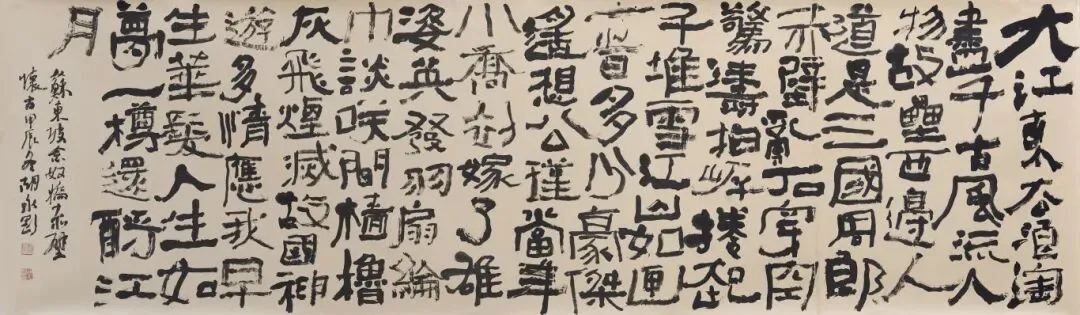 大江東去浪淘
盡千古風流人
物故壘西邊人
道是三國周郎
赤壁亂石穿空
驚濤拍岸捲起
千堆雪江山如畫
一時多少豪傑
遙想公瑾當年
小喬初嫁了雄
姿英發羽扇綸
巾談咲間檣櫓
灰飛煙滅故國神
遊多情應我早
生華髮人生如
夢一樽還酹江
月
蘇東坡念奴嬌赤壁
懷古甲辰冬湖永